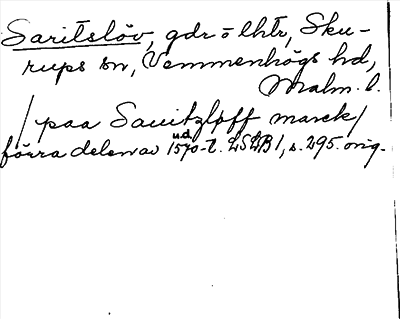 Saritslöv, gdr o lht, Sku-
rups sn, Vemmenhögs hd,
Malm. l.
/ paa Sauitzløff marck /
u.d.
förra delen av 1570-t. LSLB 1, s. 295. orig.